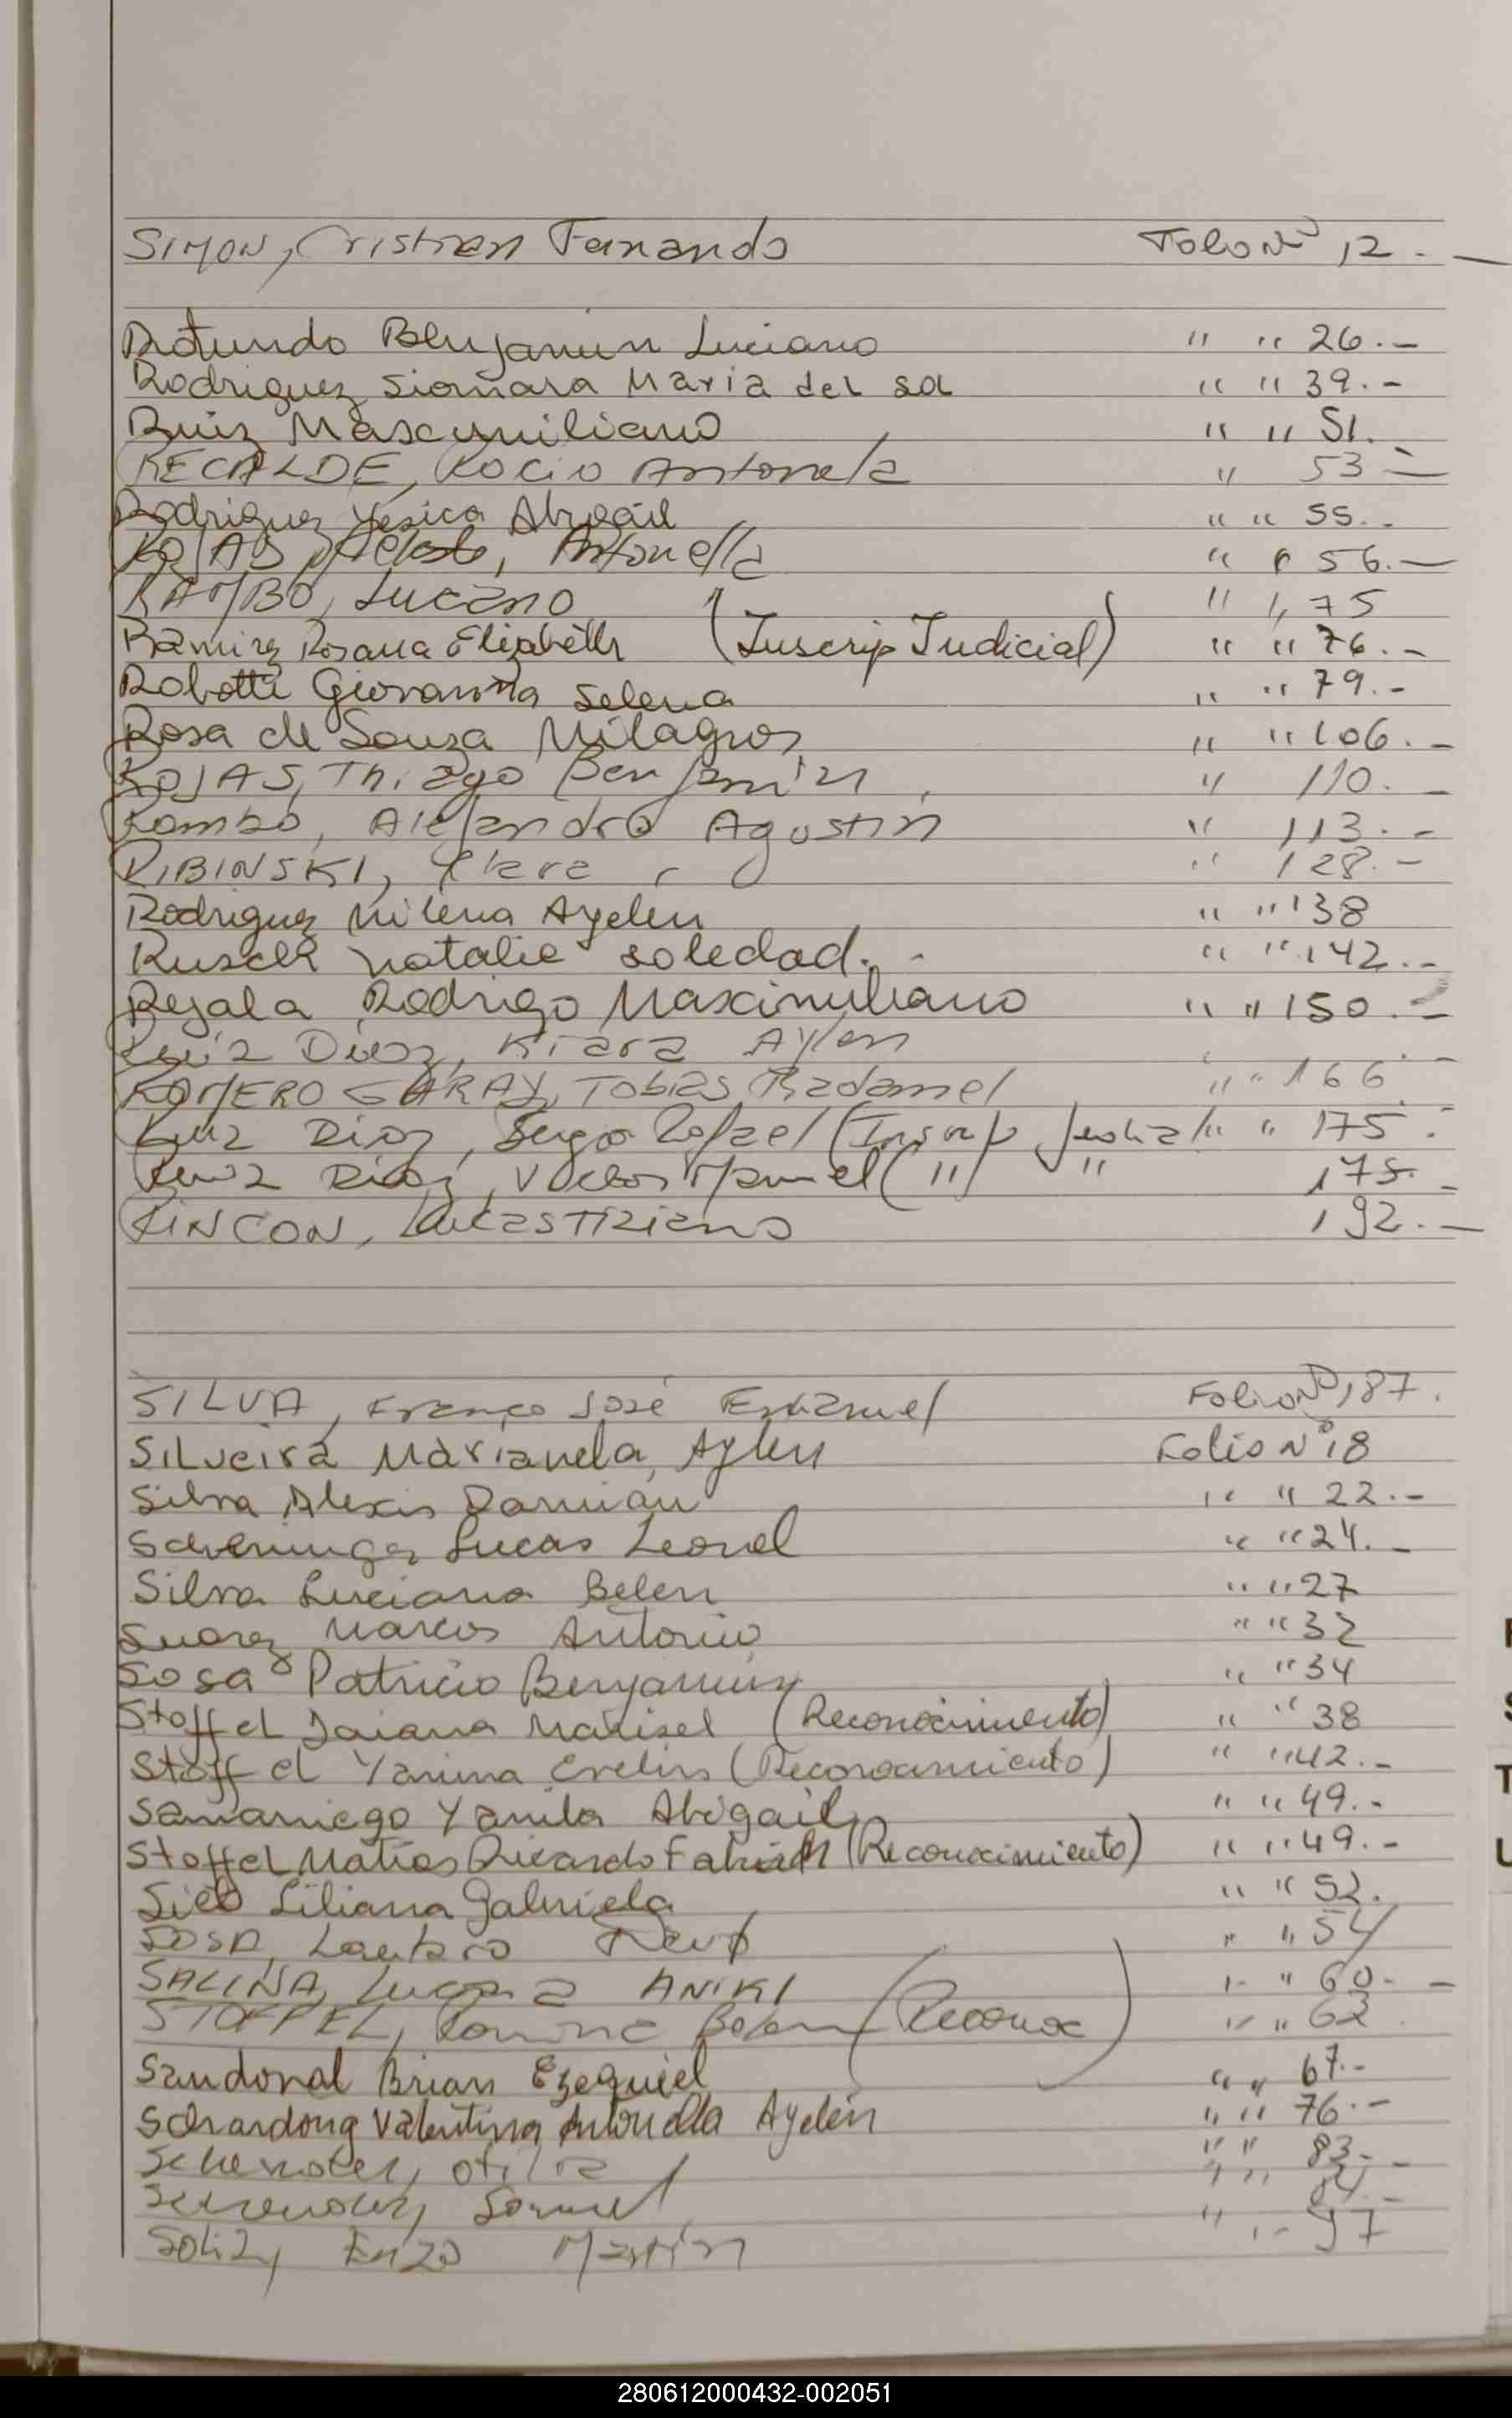 SIMON, Cristian Fernando Folio Nº 12.-
Rotundo Benjamin Luciano " " 26.-
Rodriguez Siomara Maria del Sol " " 39.-
Ruiz Mascymiliano " " 51.
RECALDE, Rocio Antonela " 53-
Rodriguez Yesica Abigail " " 55.-
ROJAS, Celeste, Antonella " " 56.-
RAMBO, Luciano " " 75
Ramirez Rosana Elizabeth (Inscrip Judicial) " " 76.-
Robotti Giovanna Selena " " 79.-
Rosa de Souza Milagros " " 106.-
ROJAS, Thiago Benjamin, " 110.-
Rambo, Alejandro Agustin " 113.-
RIBINSKI, Clara " 128.-
Rodriguez Milena Ayelen " " 138
Natalie Soledad.- " " 142.-
Rejala Rodrigo Maximiliano " " 150.-
Ruiz Diaz, Kiara Aylen " . -
ROMERO GARAY, Tobias Radamel " " 166.
Ruiz Diaz, Sergio Rafael (Inscrip Judicial " " 175.-
Ruiz Diaz, Manuel ( " ) " 175.-
RINCON, Lucas Tiziano 192.-
SILVA, Franco José Emanuel Folio Nº 187.
Silveira Marianela, Aylen Folio Nº 18
Silva Alexis Damian " " 22.-
Lucas Leonel " " 24.-
Silva Luciana Belen " " 27
Suarez Marcos Antonio " " 32
Sosa Patricio Benjamin " " 34
Stoffel Daiana Marisel (Reconocimiento) " " 38
Stoffel Yanina Evelin (Reconocimiento) " " 42.-
Samaniego Yamila Abigail " " 49.-
Stoffel Matias Ricardo Fabian (Reconocimiento) " " 49.-
Liliana Gabriela " " 52.
SOSA, Lautaro " " 54
SALINA, Luciana ANIKI " " 60.-
STOFFEL, Romina Belen (Reconoc) " " 62.
Sandoval Brian Ezequiel " " 67.-
Schardong Valentina Antonella Ayelén " " 76.-
Schendler, Otilia " " 83.-
Schendler, Samuel " " 84.-
Soliz, Enzo Martín " " 97
280612000432-002051